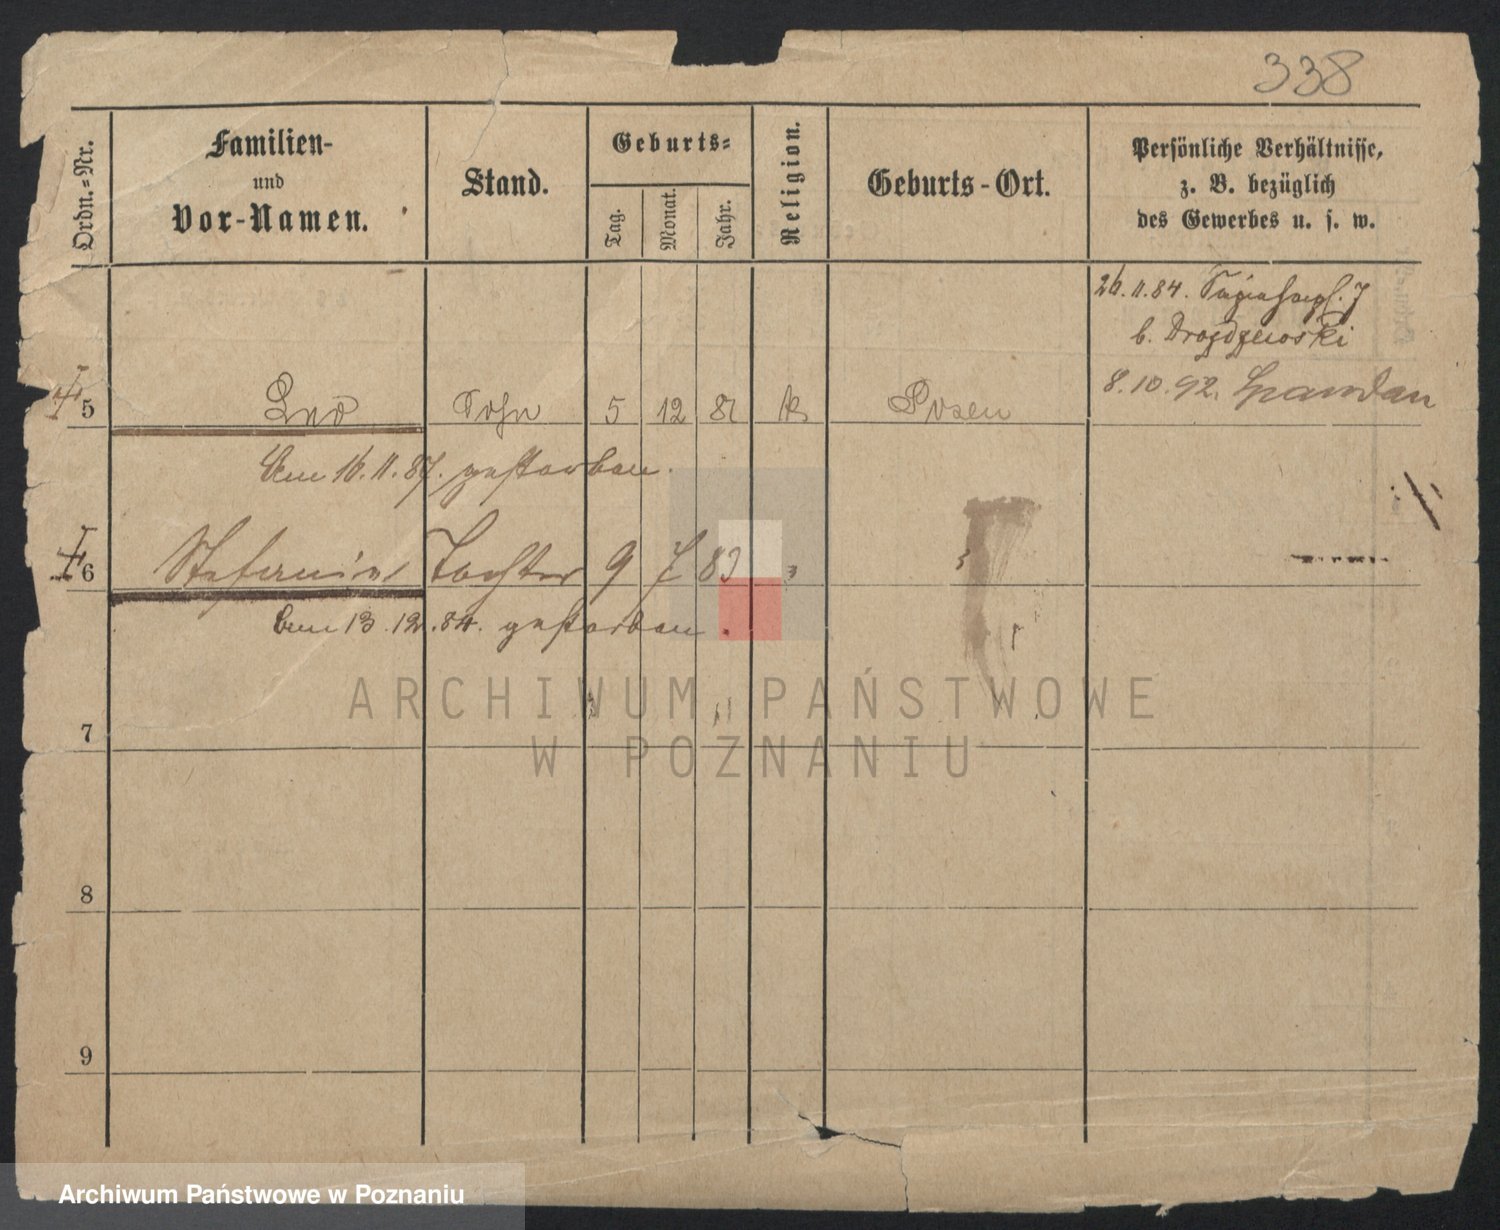 338
Ordn.=Nr.
Familien-
und
Vor-Namen.
Stand.
Geburts=
Tag.
Monat.
Jahr.
Religion.
Geburts-Ort.
Persönliche Verhältnisse,
z. B. bezüglich
des Gewerbes u. s. w.
26.11.84.
b. Drozdzewski
8.10.92. Spandau
5 Leo Sohn 5 12 81 k Posen
Am 16.11.87. gestorben.
6 Stefanie Tochter 9 7 83
Am 13.12.84. gestorben.
7
8
9
ARCHIWUM PAŃSTWOWE
W POZNANIU
Archiwum Państwowe w Poznaniu